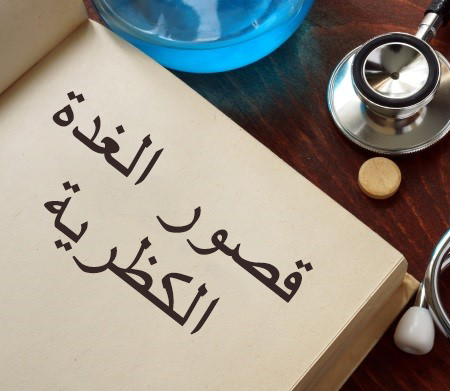 قصور الغدة
الكظرية